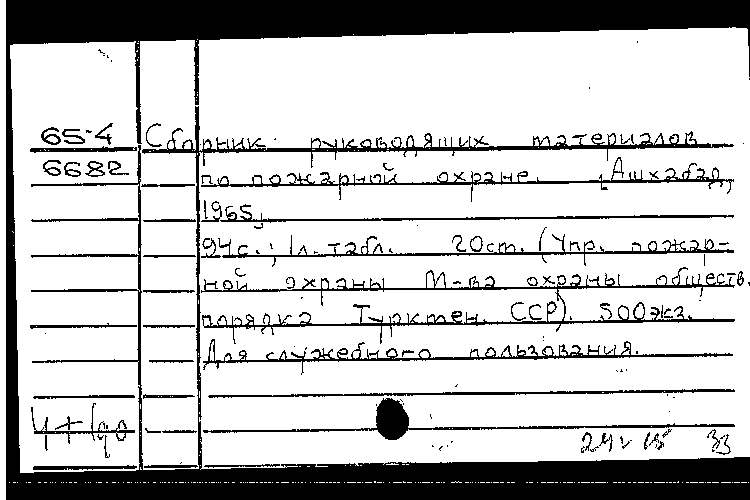 65-4 Сборник руководящих материалов
6682 по пожарной охране. [Ашхабад,
1965]
94с.; 1л. табл. 20см. (Упр. пожар-
ной охраны М-ва охраны обществ.
порядка Туркмен. ССР). 500экз.
Для служебного пользования.